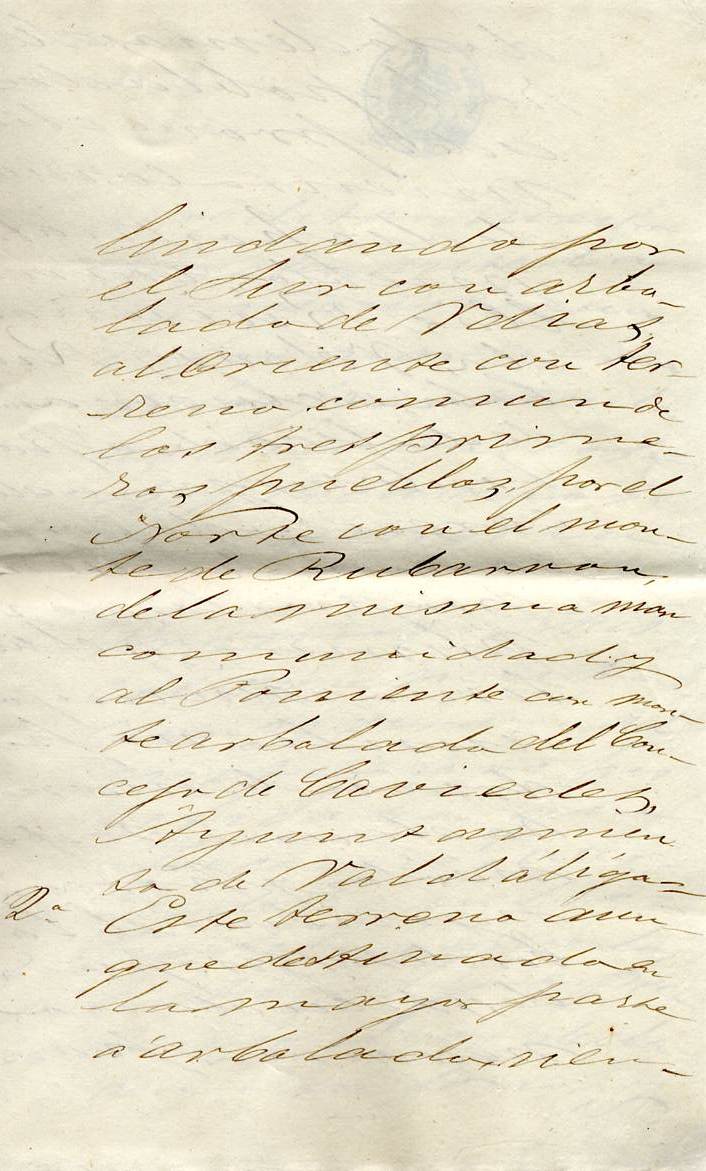 lindando por
el Sur con arbo-
lado de Udias,
al Oriente con ter-
reno comun de
los tres prime-
ros pueblos, por el
Norte con el mon-
te de Rubarron,
de la misma man
comunidad y
al Poniente con mon-
te arbolado del Con-
cejo de Caviedes,
Ayuntamien
to de Valdáliga=
2ª Este terreno aun-
que destinado en
la mayor parte
á arbolado, vien-